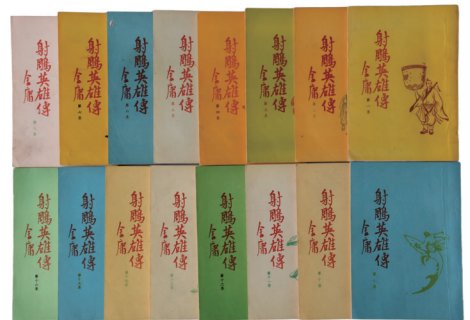 射鵰英雄傳
金庸
射鵰英雄傳
金庸
射鵰英雄傳
金庸
射鵰英雄傳
金庸
射鵰英雄傳
金庸
射鵰英雄傳
金庸
射鵰英雄傳
金庸
射鵰英雄傳
金庸
射鵰英雄傳
金庸
射鵰英雄傳
金庸
射鵰英雄傳
金庸
射鵰英雄傳
金庸
射鵰英雄傳
金庸
射鵰英雄傳
金庸
射鵰英雄傳
金庸
射鵰英雄傳
金庸